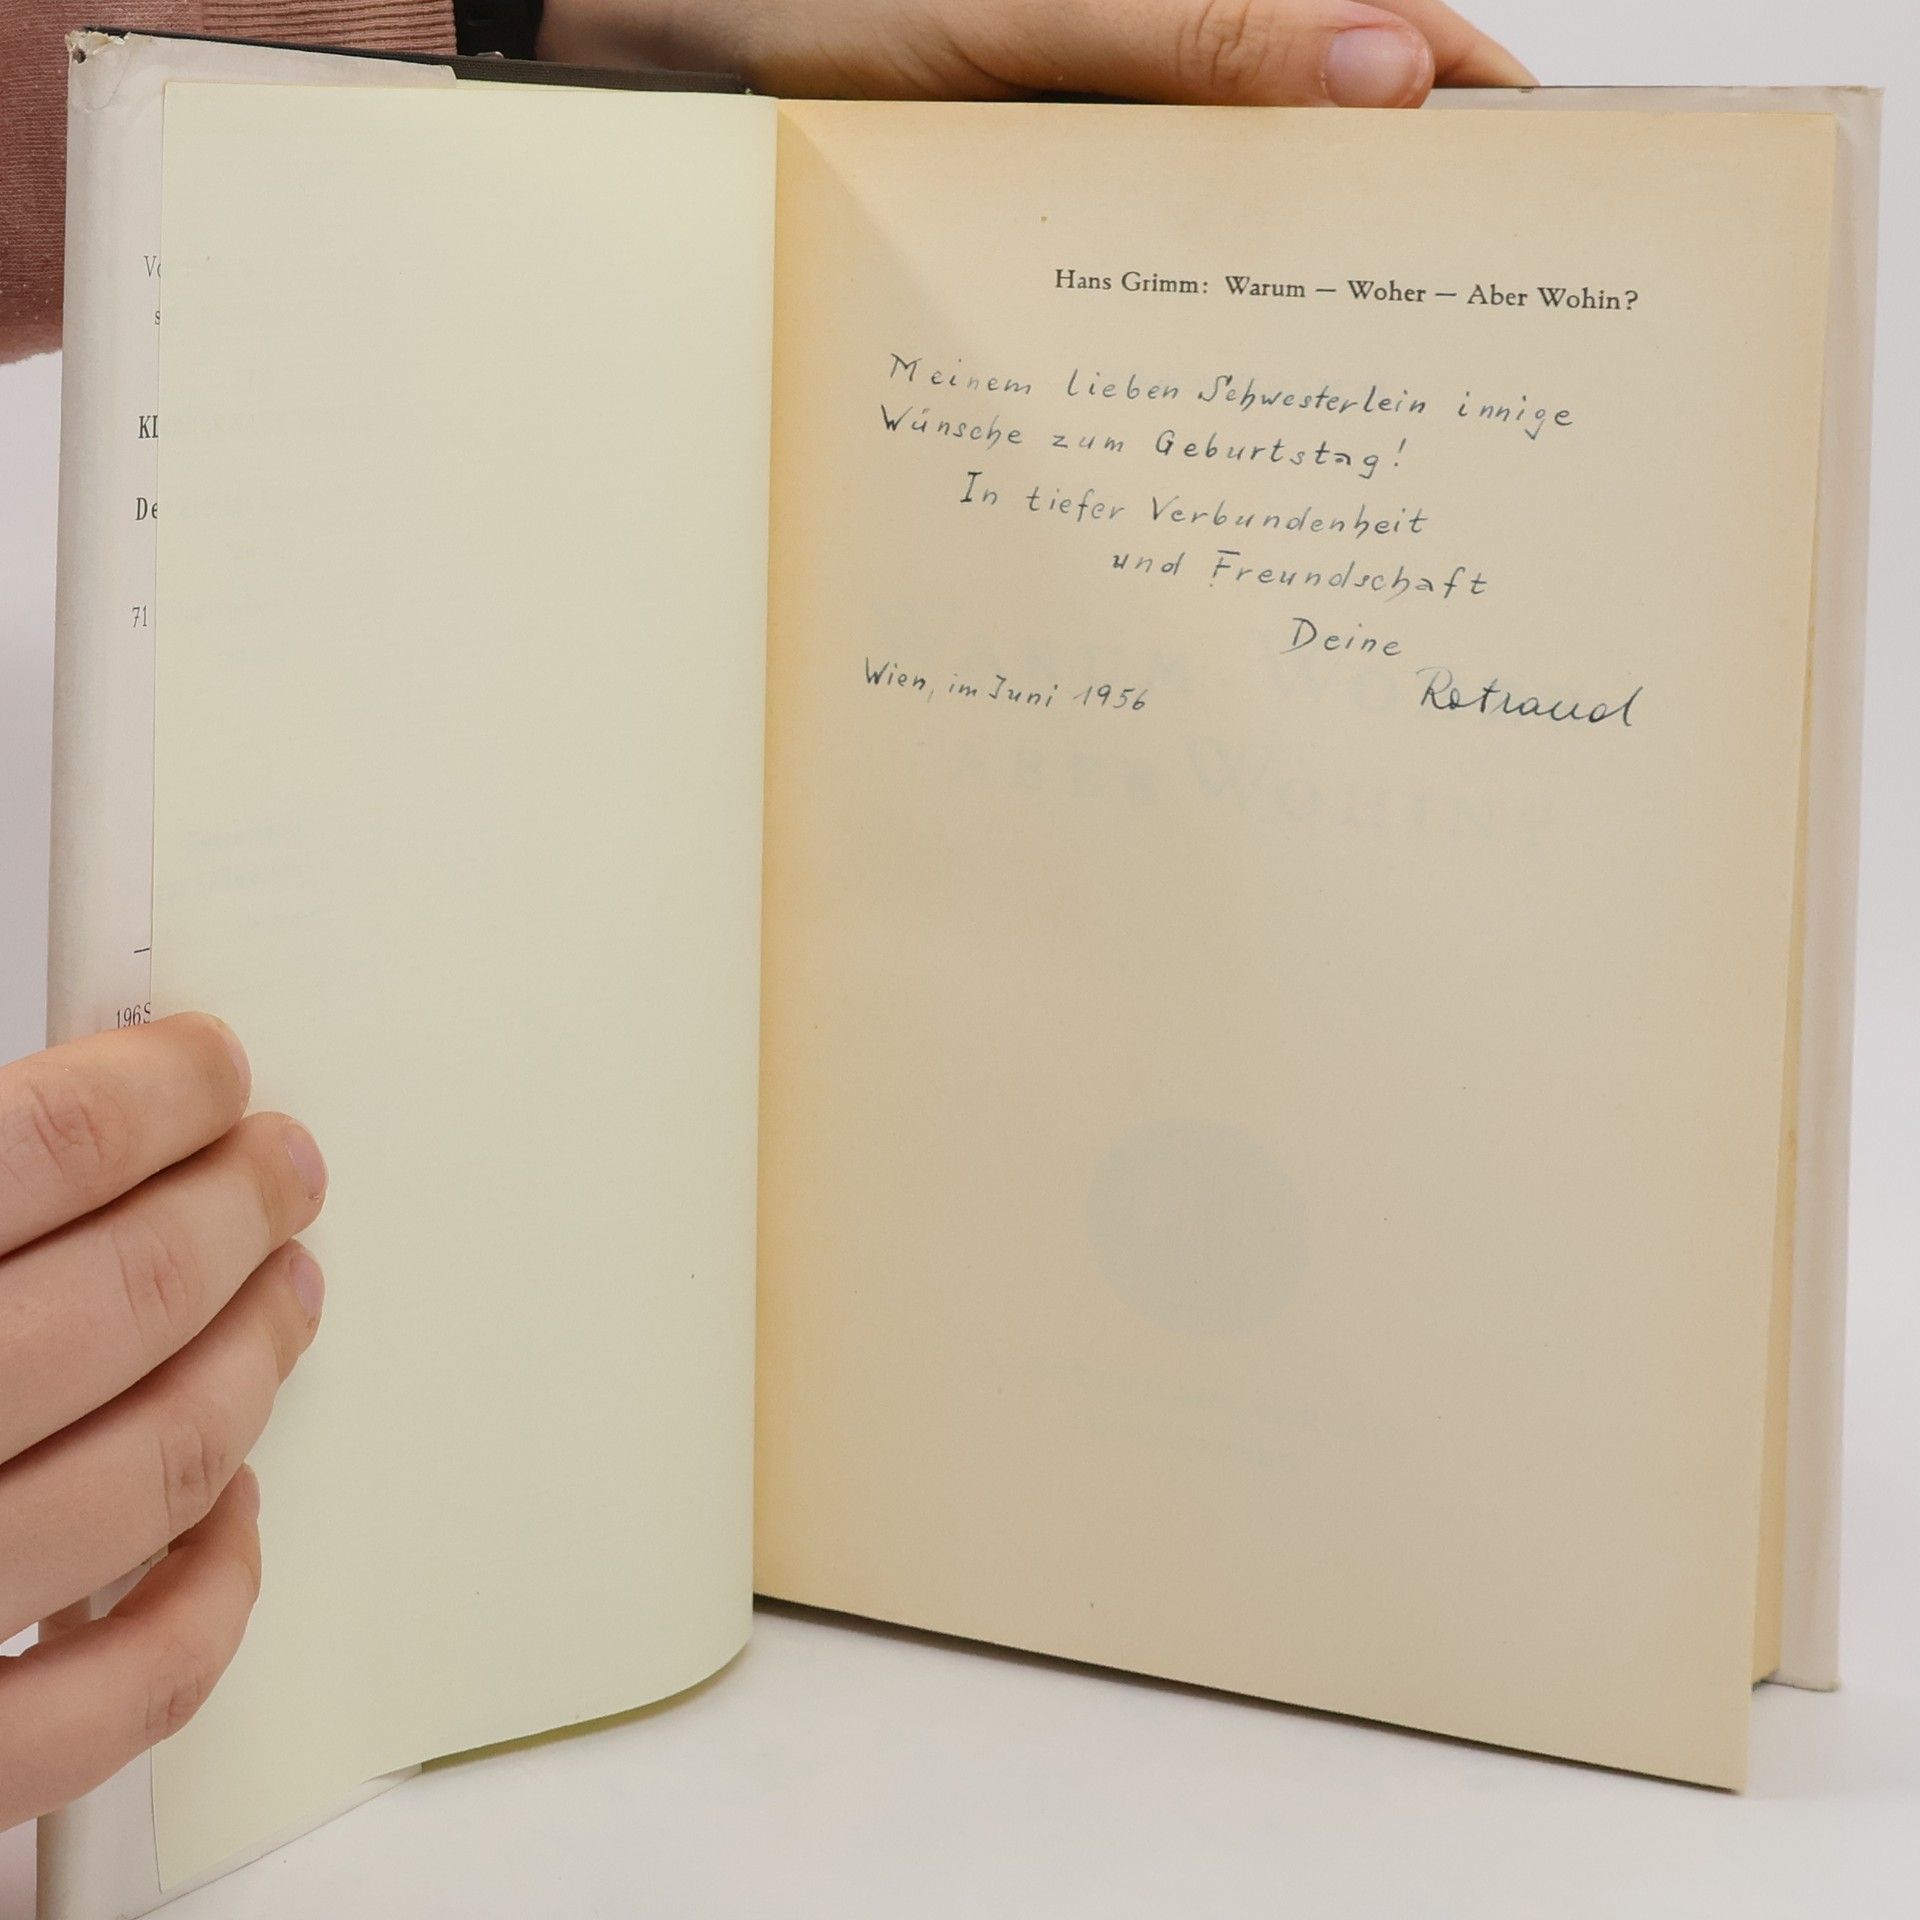 Vo
s
KL
De
71
196S
Hans Grimm: Warum — Woher — Aber Wohin?
Meinem lieben Schwesterlein innige
Wünsche zum Geburtstag!
In tiefer Verbundenheit
und Freundschaft
Deine
Wien, im Juni 1956 Rotraud